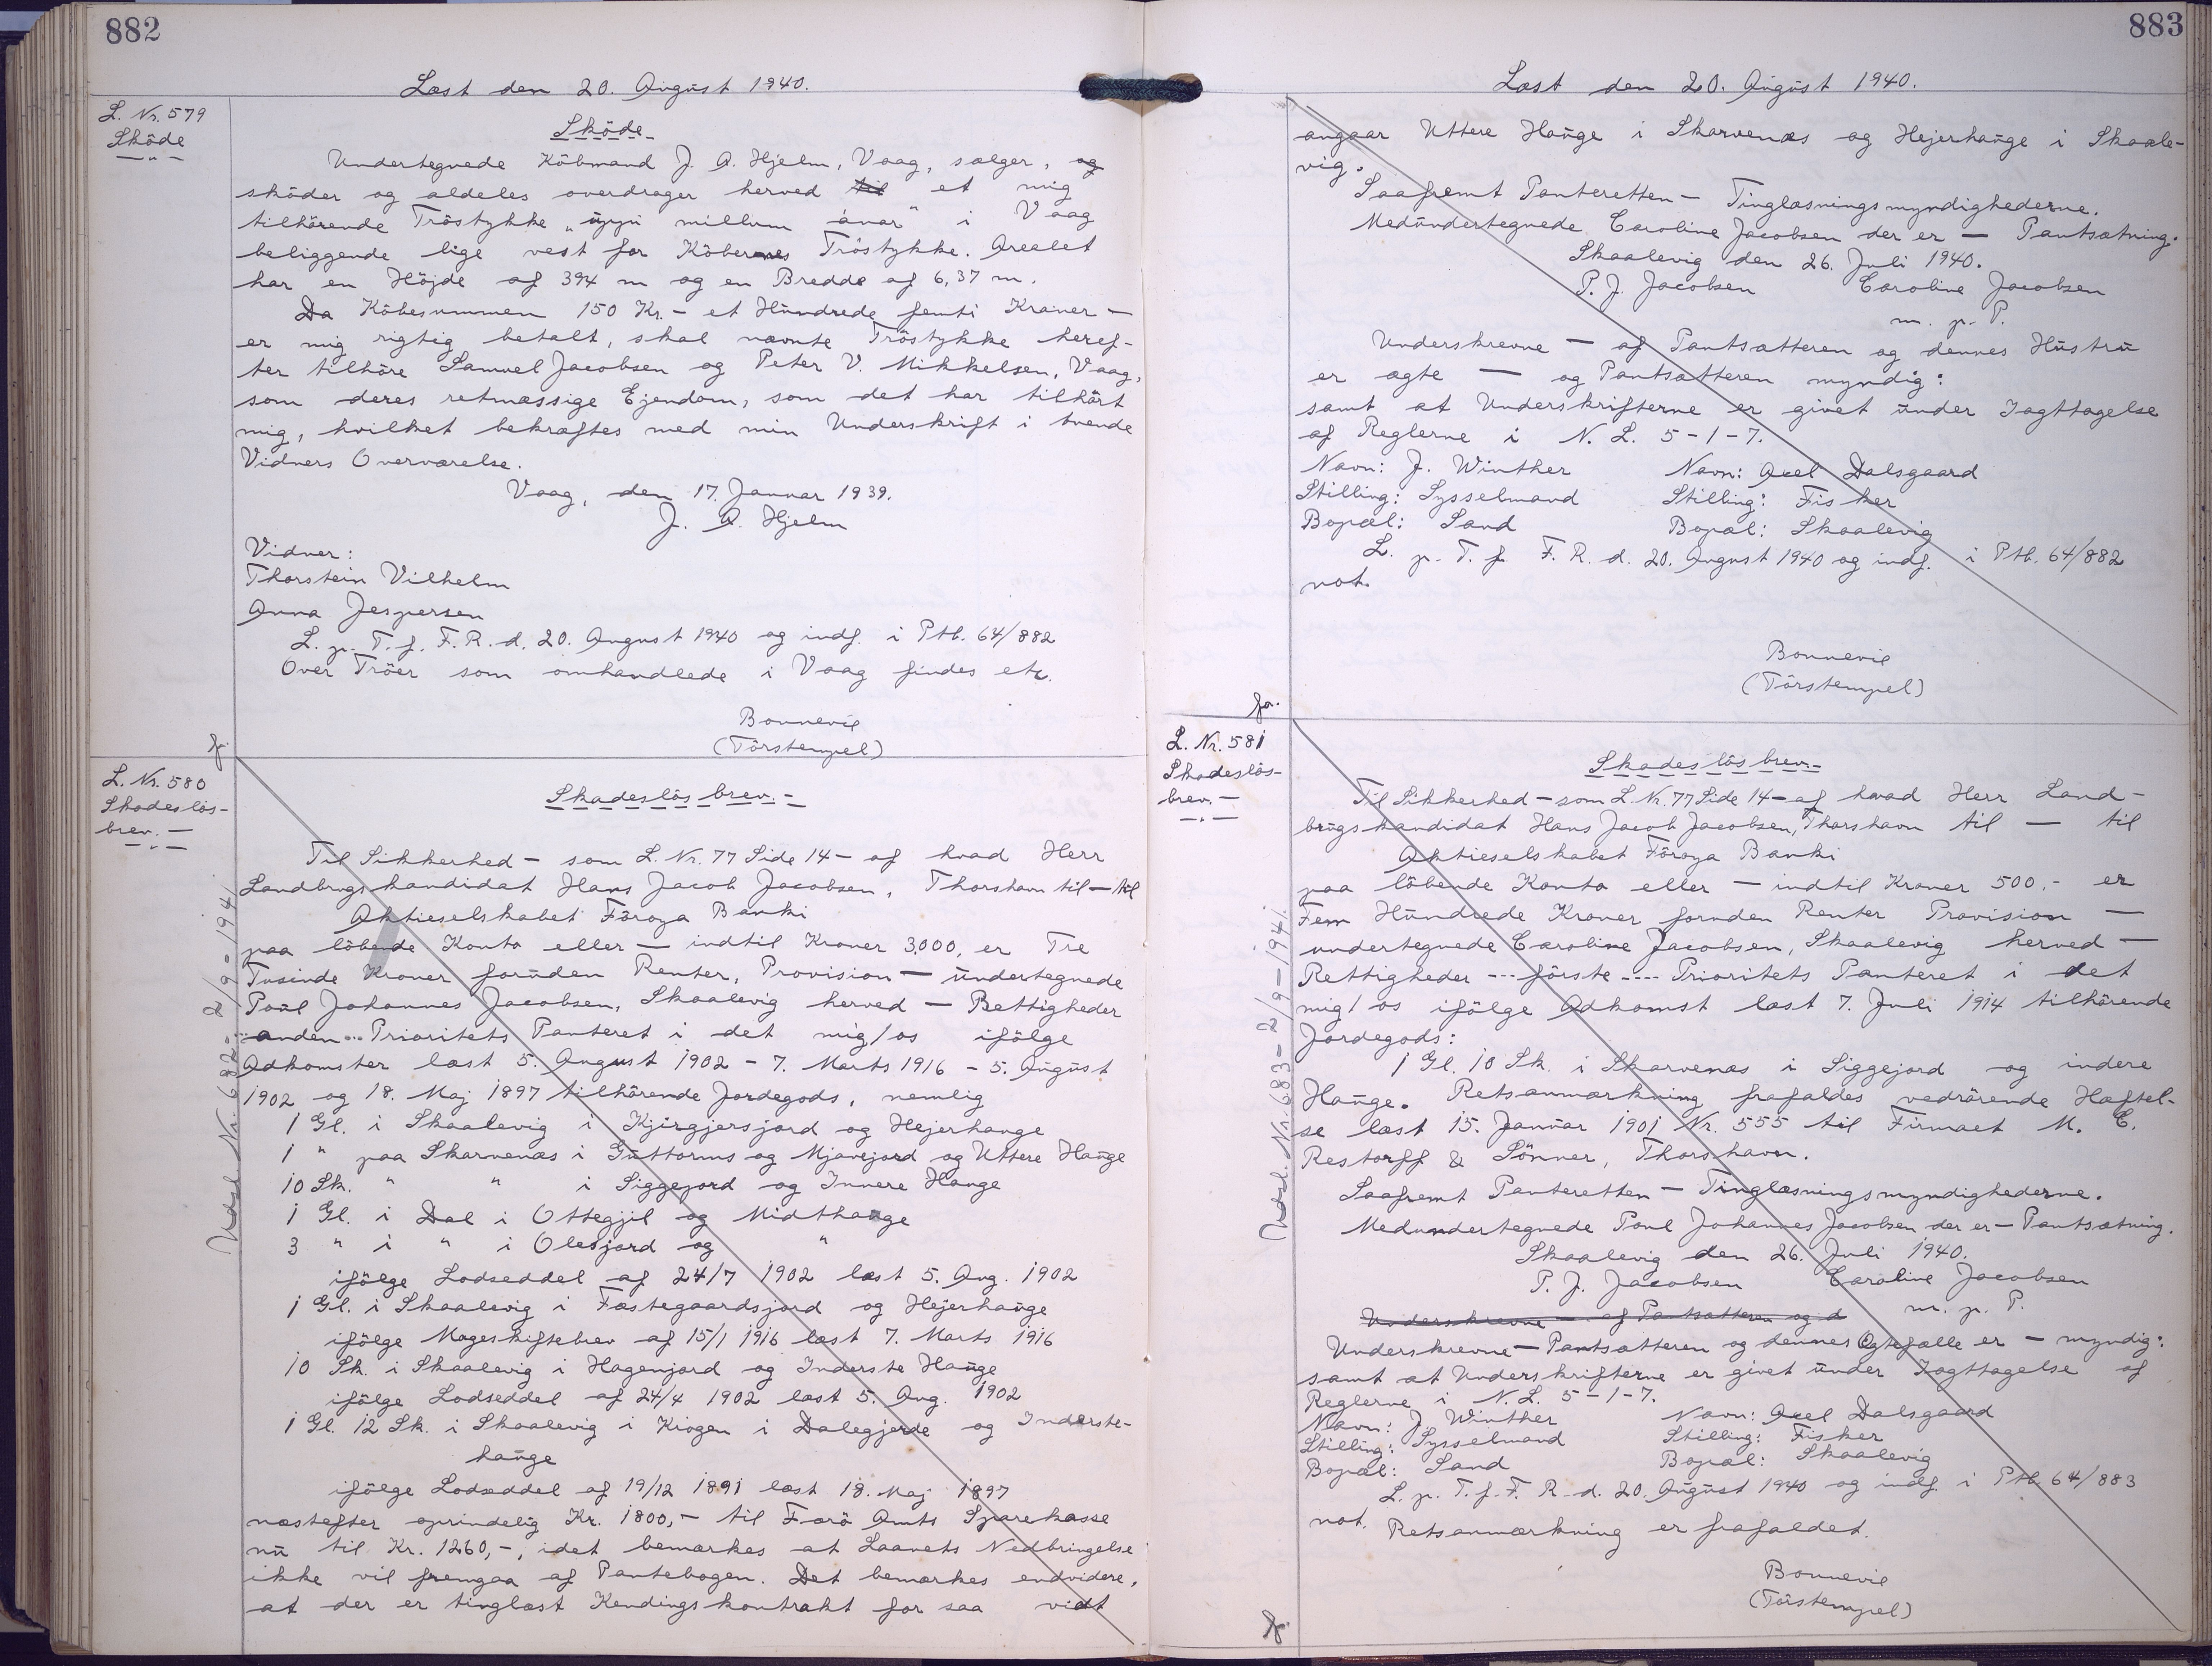 882
Læst den 20. August 1940.
L. Nr. 579
Sköde
Sköde
Undertegnede Köbmand J. A. Hjelm, Vaag, sælger, og
sköder og aldeles overdrager herved til et mig
tilhörende Tröstykke „uppi millum ánar" i Vaag
beliggende lige vest for Köbernes Tröstykke. Arealet
har en Höjde af 394 m og en Bredde af 6,37 m.
Da Köbesummen 150 Kr. - et Hundrede femti Kroner —
er mig rigtig betalt, skal nævnte Tröstykke heref-
ter tilhöre Samuel Jacobsen og Peter V. Mikkelsen, Vaag,
som deres retmæssige Ejendom, som det har tilhört
mig, hvilket bekræftes med min Underskrift i tvende
Vidners Overværelse.
Vaag, den 17. Januar 1939.
J. A. Hjelm
Vidner:
Thorstein Vilhelm
Anna Jespersen
L. p. T. f. F. R. d. 20. August 1940 og indf. i Ptb. 64/882
Over Tröer som omhandlede i Vaag findes etc.
Bonnevie
(Törstempel)
fr.
L. Nr. 580
Skadeslös-
brev. —
Skadeslös brev. -
Til Sikkerhed - som L. Nr. 77 Side 14 - af hvad Herr
Landbrugskandidat Hans Jacob Jacobsen, Thorshavn til — til
Aktieselskabet Föroya Banki
paa löbende Konto eller — indtil Kroner 3.000, er Tre
Tusinde Kroner foruden Renter, Provision — undertegnede
Poul Johannes Jacobsen, Skaalevig herved — Rettigheder
... anden ... Prioritets Panteret i det mig/os ifölge
Adkomster læst 5. August 1902 - 7. Marts 1916 - 5. August
1902 og 18. Maj 1897 tilhörende Jordegods, nemlig
1 Gl. i Skaalevig i Kjirgjersjord og Hejerhauge
1 " paa Skarvenæs i Guttorms og Mjavejord og Uttere Hauge
10 Sk. " " i Siggejord og Innere Hauge
1 Gl. i Dal i Ottegjil og Midthauge
3 " i " i Olesjord og "
ifölge Lodseddel af 24/7 1902 læst 5. Aug. 1902
1 Gl. i Skaalevig i Fæstegaardsjord og Hejerhauge
ifölge Mageskiftebrev af 15/1 1916 læst 7. Marts 1916
10 Sk. i Skaalevig i Hagenjord og Inderste Hauge
ifölge Lodseddel af 24/4 1902 læst 5. Aug. 1902
1 Gl. 12 Sk. i Skaalevig i Krogen i Dalegjerde og Inderste-
hauge
ifölge Lodseddel af 19/12 1891 læst 18. Maj 1897
næstefter oprindelig Kr. 1800,- til Færö Amts Sparekasse
nu til Kr. 1260,-, idet bemærkes at Laanets Nedbringelse
ikke vil fremgaa af Pantebogen. Det bemærkes endvidere,
at der er tinglæst Kendingskontrakt for saa vidt
Udsl. Nr. 682 - 2/9 - 1941
883
Læst den 20. August 1940.
angaar Uttere Hauge i Skarvenæs og Hejerhauge i Skaale-
vig.
Saafremt Panteretten — Tinglæsningsmyndighederne.
Medundertegnede Caroline Jacobsen der er — Pantsætning.
Skaalevig den 26. Juli 1940.
P. J. Jacobsen Caroline Jacobsen
m. p. P.
Underskrevne — af Pantsætteren og dennes Hustru
er ægte — og Pantsætteren myndig:
samt at Underskrifterne er givet under Iagttagelse
af Reglerne i N. L. 5 - 1 - 7.
Navn: J. Winther Navn: Axel Dalsgaard
Stilling: Sysselmand Stilling: Fisker
Bopæl: Sand Bopæl: Skaalevig
L. p. T. f. F. R. d. 20. August 1940 og indf. i Ptb. 64/882
not.
Bonnevie
(Törstempel)
fr.
L. Nr. 581
Skadeslös-
brev. —
Skadeslös brev. -
Til Sikkerhed - som L. Nr. 77 Side 14 - af hvad Herr Land-
brugskandidat Hans Jacob Jacobsen, Thorshavn til — til
Aktieselskabet Föroya Banki
paa löbende Konto eller — indtil Kroner 500,- er
Fem Hundrede Kroner foruden Renter Provision —
undertegnede Caroline Jacobsen, Skaalevig herved —
Rettigheder --- förste ---- Prioritets Panteret i det
mig/os ifölge Adkomst læst 7. Juli 1914 tilhörende
Jordegods:
1 Gl. 10 Sk. i Skarvenæs i Siggejord og indere
Hauge. Retsanmærkning frafaldes vedrörende Hæftel-
se læst 15. Januar 1901 Nr. 555 til Firmaet M. C.
Restorff & Sönner, Thorshavn.
Saafremt Panteretten — Tinglæsningsmyndighederne.
Medundertegnede Poul Johannes Jacobsen der er — Pantsætning.
Skaalevig den 26. Juli 1940.
P. J. Jacobsen Caroline Jacobsen
m. p. P.
Underskrevne — af Pantsætteren og d
Underskrevne — Pantsætteren og dennes Ægtefælle er — myndig:
samt at Underskrifterne er givet under Iagttagelse af
Reglerne i N. L. 5 - 1 - 7.
Navn: J. Winther Navn: Axel Dalsgaard
Stilling: Sysselmand Stilling: Fisker
Bopæl: Sand Bopæl: Skaalevig
L. p. T. f. F. R. d. 20. August 1940 og indf. i Ptb. 64/883
not. Retsanmærkning er frafaldet.
Bonnevie
(Törstempel)
fr.
Udsl. Nr. 683 - 2/9 - 1941